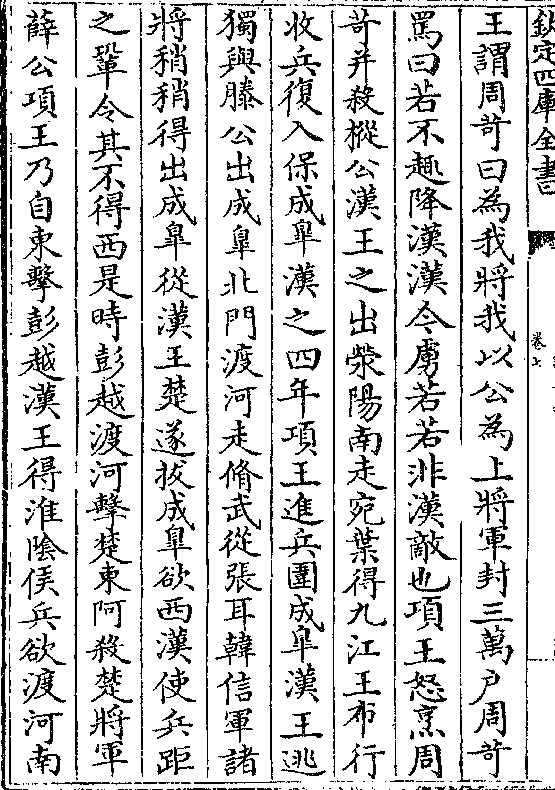 欽定四庫全書
卷七
王謂周苛曰為我將我以公為上將軍封三萬戶周苛
罵曰若不趣降漢漢今虜若若非漢敵也項王怒烹周
苛并殺樅公漢王之出滎陽南走宛葉得九江王布行
收兵復入保成臯漢之四年項王進兵圍成臯漢王逃
獨與滕公出成臯北門渡河走脩武從張耳韓信軍諸
將稍稍得出成臯從漢王楚遂拔成臯欲西漢使兵距
之鞏令其不得西是時彭越渡河擊楚東阿殺楚將軍
薛公項王乃自東擊彭越漢王得淮陰侯兵欲渡河南